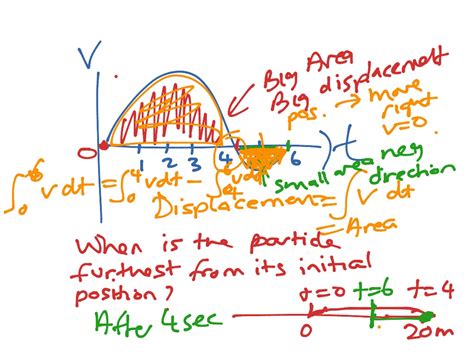 V
Big Area
Big displacement
pos. → move right
v=0
0 1 2 3 4 6 t
small area neg direction
∫₀⁶ v dt = ∫₀⁴ v dt − ∫ v dt
Displacement = ∫ v dt
= Area
When is the particle
furthest from its initial
position?
t=0 t=6 t=4
After 4 sec
0 20m